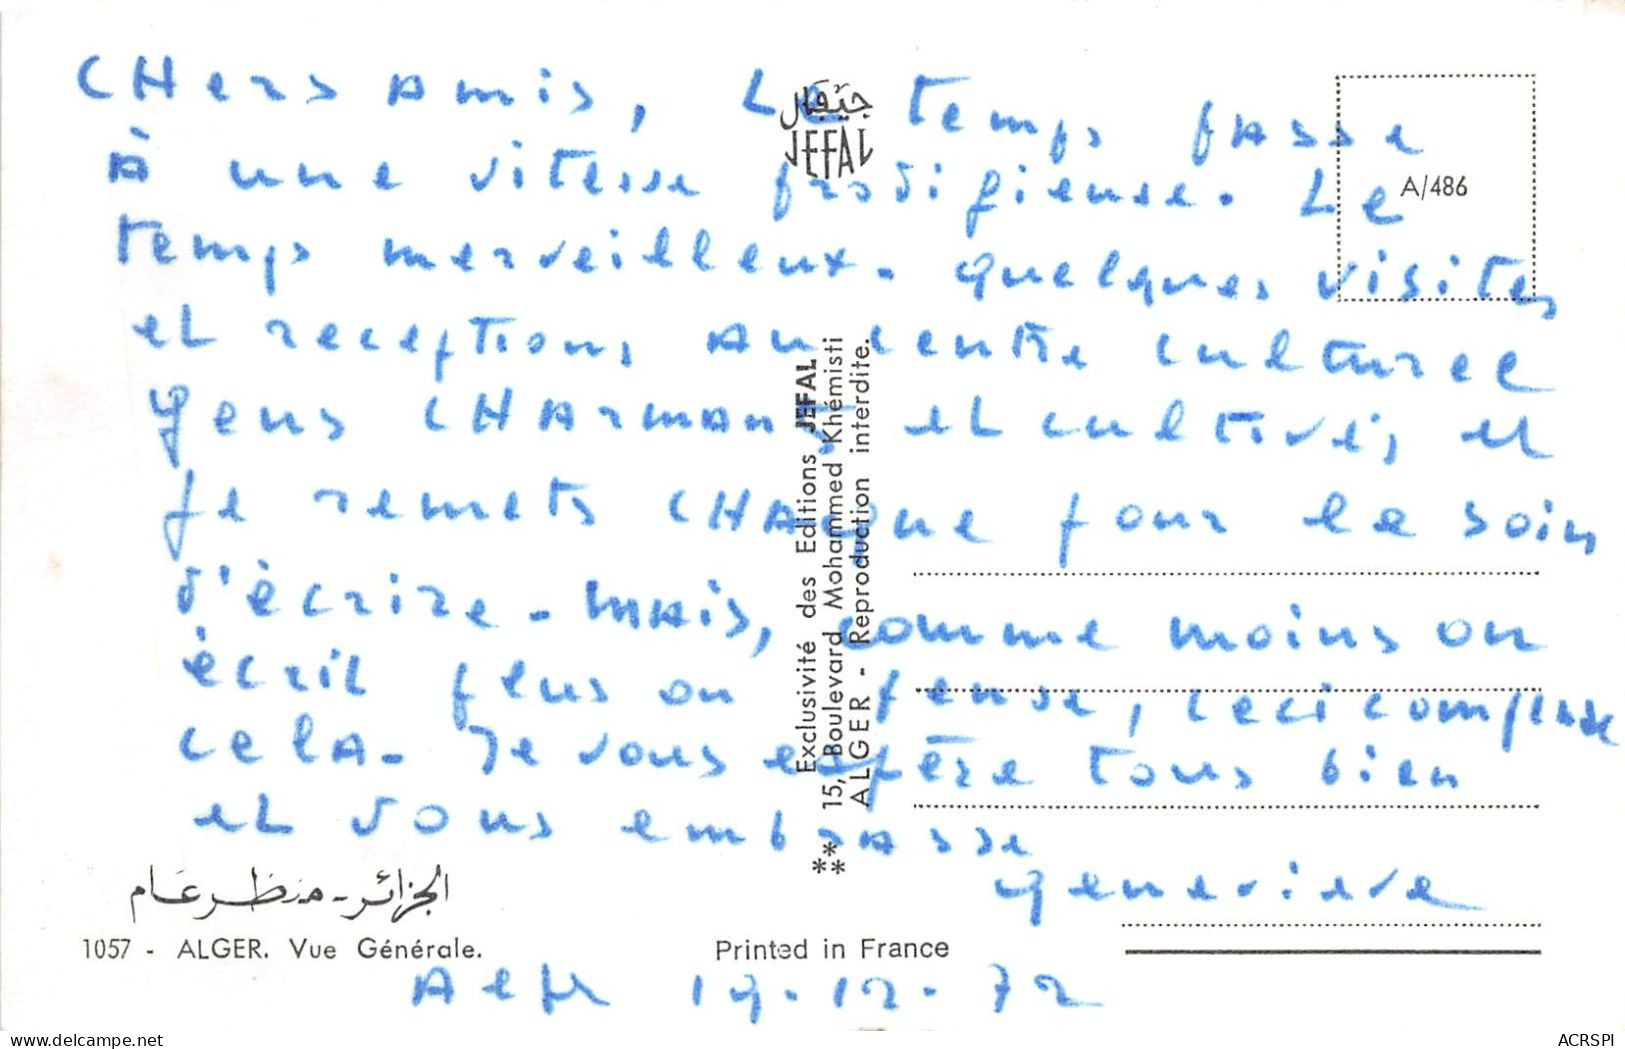 CHers Amis, Le temps passe
À une vitesse prodigieuse. Le
temps merveilleux. quelques visites
et receptions au centre culturel
gens CHArmants et cultivés, et
je remets CHAque jour le soin
d'écrire - mais, comme moins on
écrit plus on pense, ceci compense
cela. Je vous espère tous bien
et vous embrasse
genevieve
19.12.72
جيفال
JEFAL
A/486
Exclusivité des Editions JEFAL
15, Boulevard Mohammed Khémisti
ALGER - Reproduction interdite.
**
**
الجزائر - منظر عام
1057 - ALGER. Vue Générale.
Printed in France
delcampe.net
ACRSPI